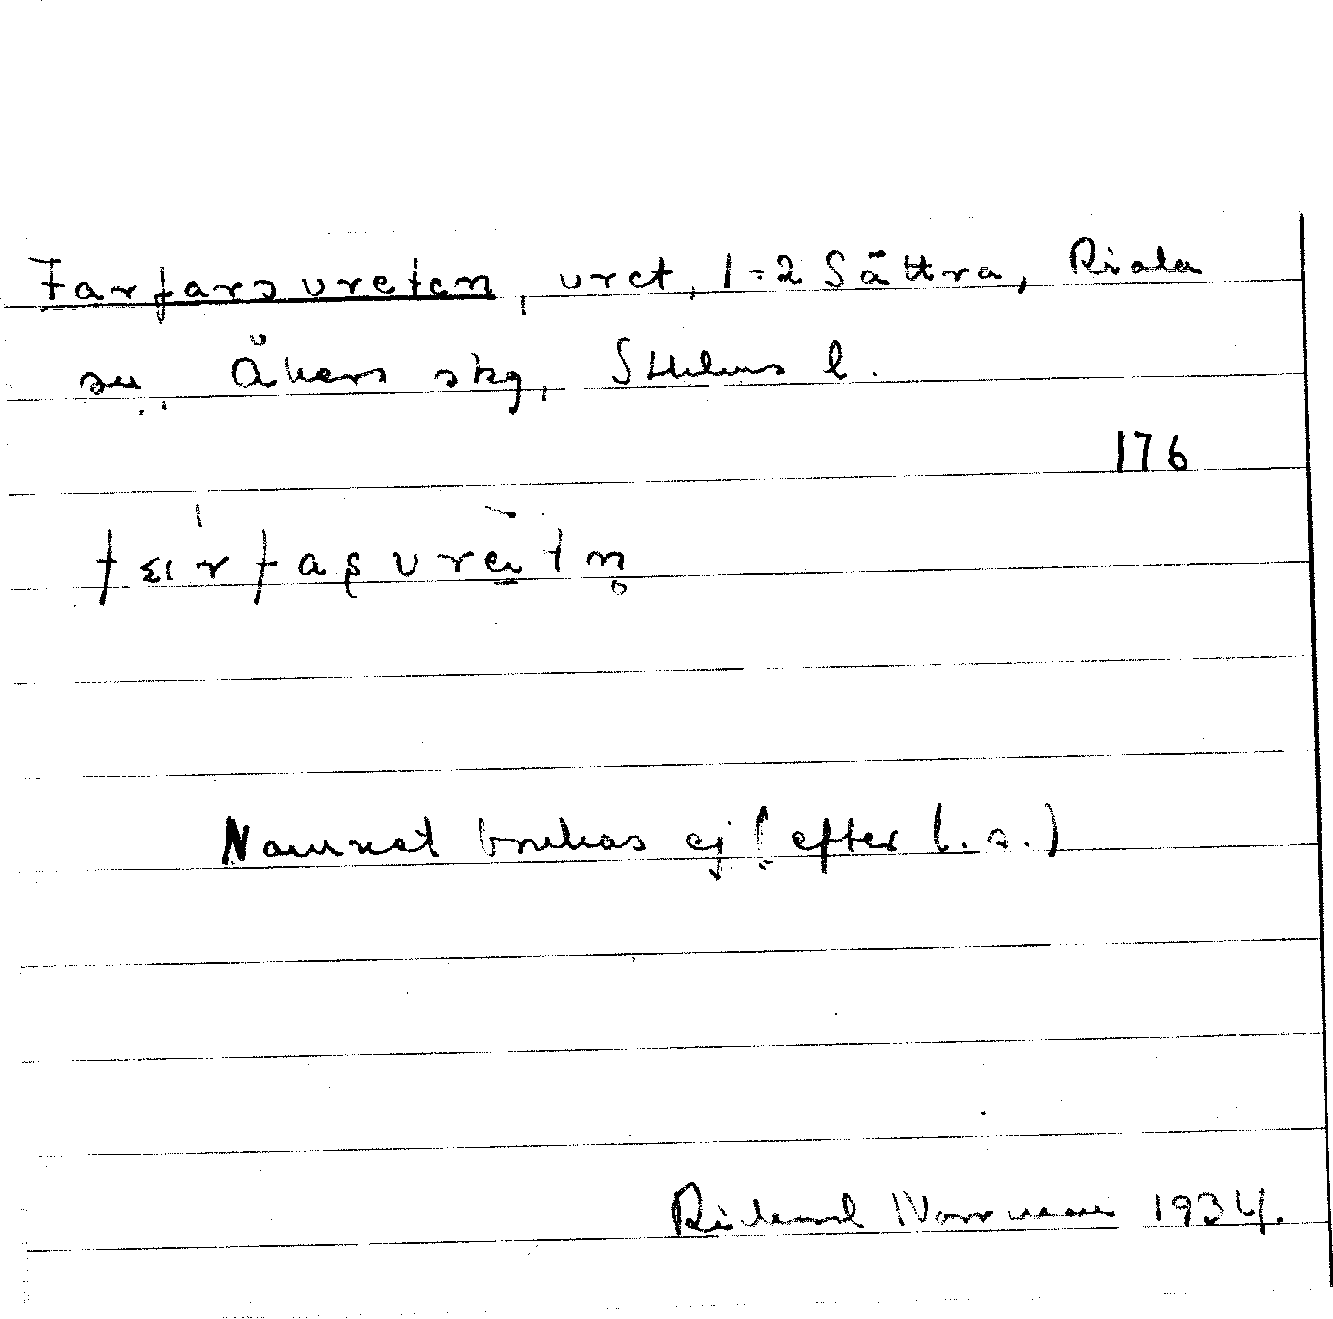 Farfarsvreten, vret, 1-2 Sättra, Riala
sn, Åkers skg, Sthlms l.
176
Namnet brukas ej (efter l. s.)
Rickard Norrman 1934.